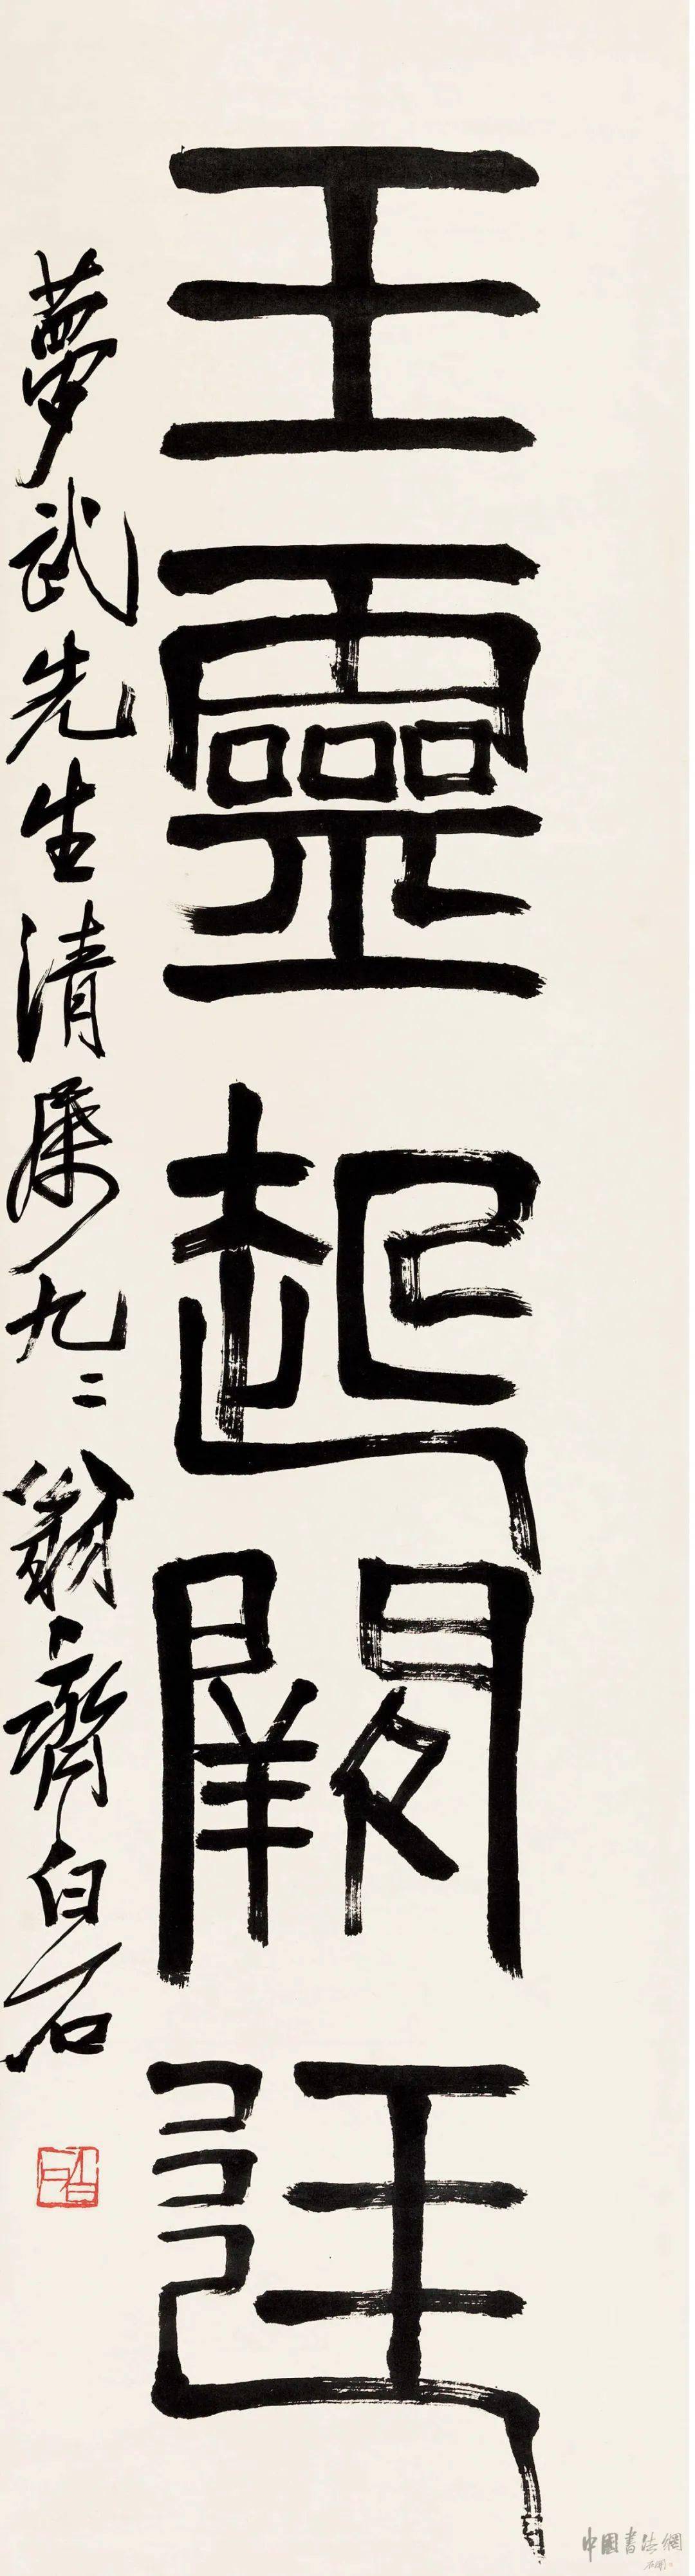 王靈起闕廷
夢武先生清屬九二翁齊白石
白石
中國書法網